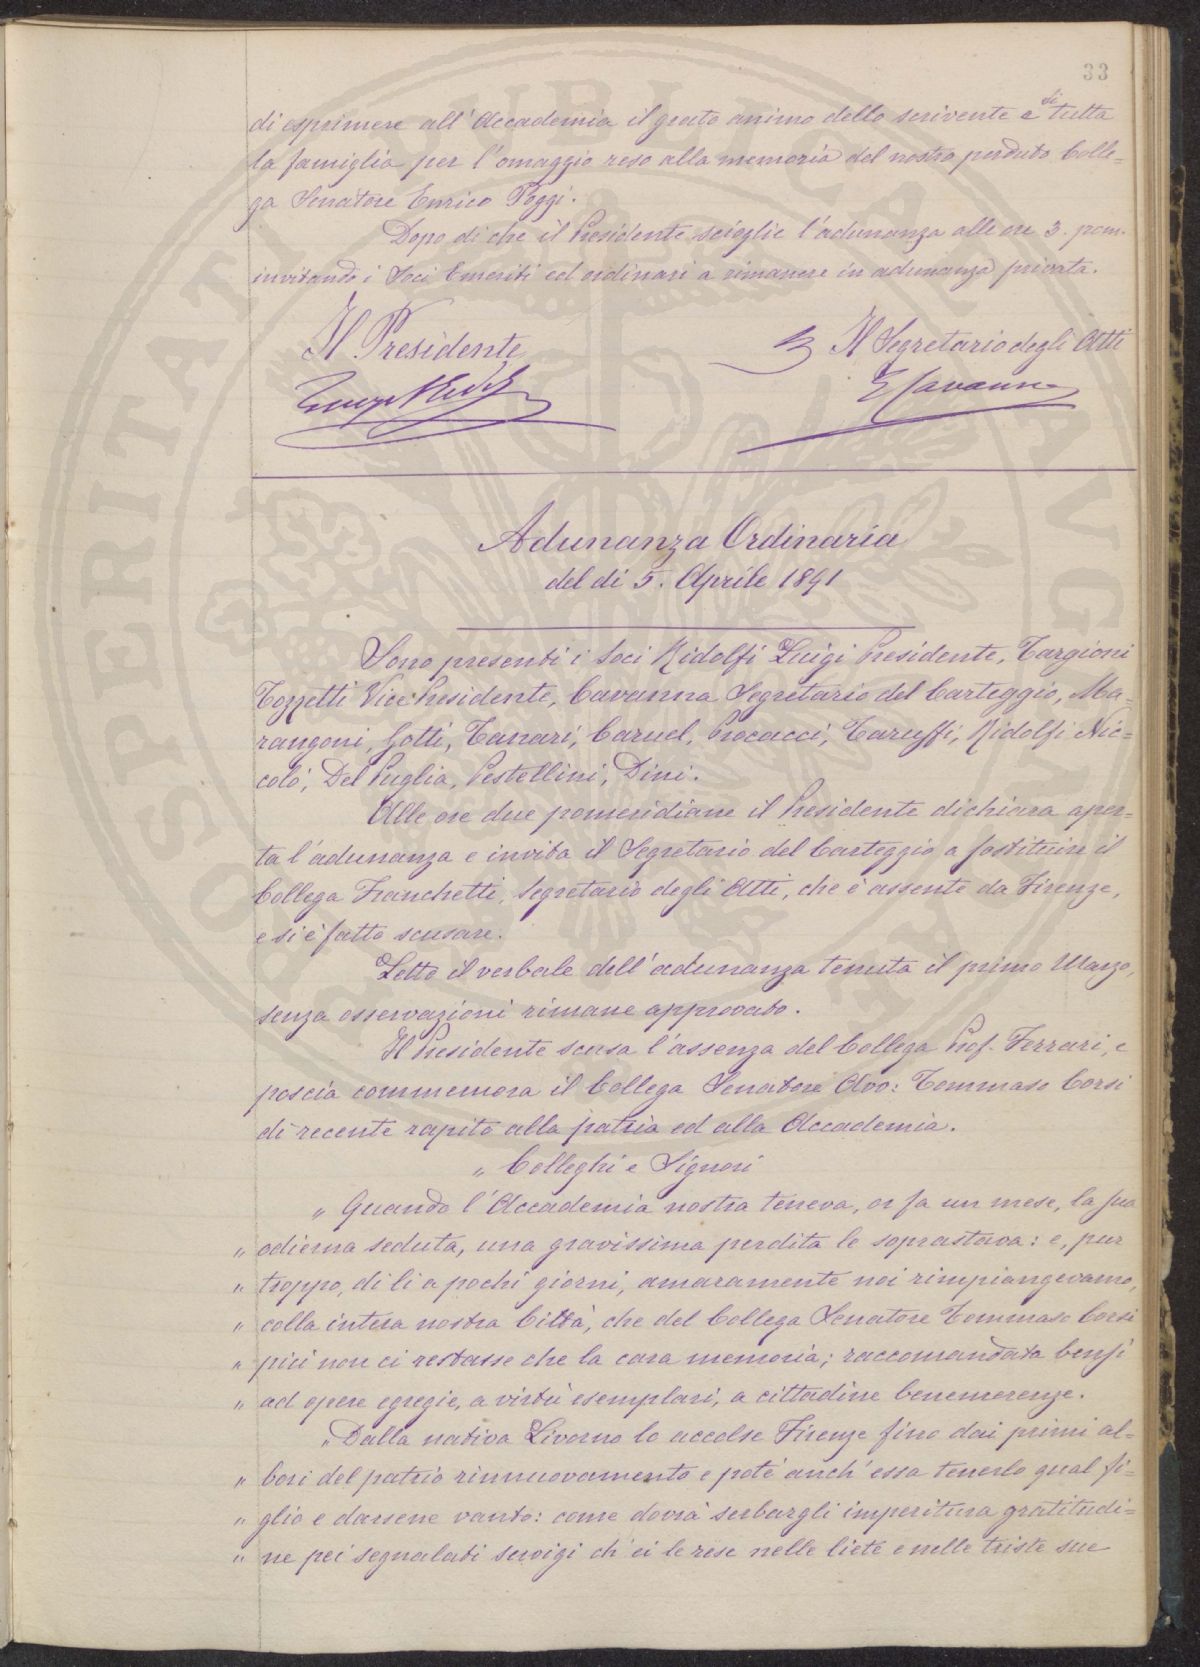 33
di esprimere all'Accademia il grato animo dello scrivente e di tutta
la famiglia per l'omaggio reso alla memoria del nostro perduto Colle=
ga Senatore Enrico Poggi.
Dopo di che il Presidente scioglie l'adunanza alle ore 3. pom.
invitando i Soci Emeriti ed ordinari a rimanere in adunanza privata.
Il Presidente
Il Segretario degli Atti
E Cavanna
Adunanza Ordinaria
del dì 5. Aprile 1891
Sono presenti i Soci Ridolfi Luigi Presidente, Targioni
Tozzetti Vice Presidente, Cavanna Segretario del Carteggio, Ma=
rangoni, Gotti, Tanari, Caruel, Procacci, Taruffi, Ridolfi Nic=
colò, Del Puglia, Pestellini, Dini.
Alle ore due pomeridiane il Presidente dichiara aper=
ta l'adunanza e invita il Segretario del Carteggio a sostituire il
Collega Franchetti, Segretario degli Atti, che è assente da Firenze,
e si è fatto scusare.
Letto il verbale dell'adunanza tenuta il primo Marzo,
senza osservazioni rimane approvato.
Il Presidente scusa l'assenza del Collega Prof. Ferrari, e
poscia commemora il Collega Senatore Avv: Tommaso Corsi
di recente rapito alla patria ed alla Accademia.
„ Colleghi e Signori
„ Quando l'Accademia nostra teneva, or fa un mese, la sua
„ odierna seduta, una gravissima perdita le soprastava: e, pur
„ troppo, di lì a pochi giorni, amaramente noi rimpiangevamo,
„ colla intera nostra Città, che del Collega Senatore Tommaso Corsi
„ più non ci restasse che la cara memoria; raccomandata bensì
„ ad opere egregie, a virtù esemplari, a cittadine benemerenze.
„ Dalla nativa Livorno lo accolse Firenze fino dai primi al=
„ bori del patrio rinnuovamento e potè anch'essa tenerlo qual fi=
„ glio e darsene vanto: come dovrà serbargli imperitura gratitudi=
„ ne pei segnalati servigi ch'ei le rese nelle liete e nelle triste sue